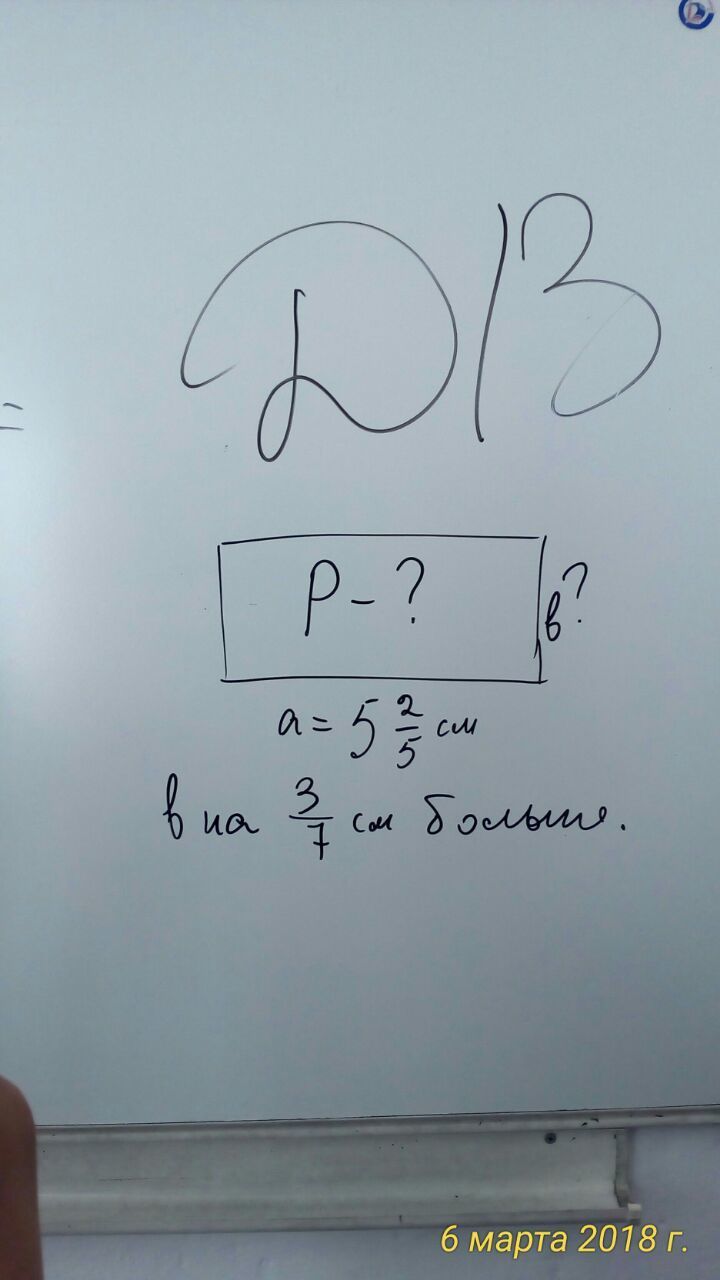 =
Д/З
P-?
в?
a = 5 2/5 см
в на 3/7 см больше.
6 марта 2018 г.